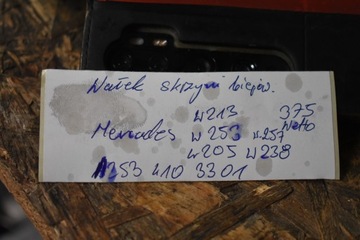 Wałek skrzyni biegów.
W213 375
Mercedes W253 W257 Netto
W205 W238
A253 410 3301